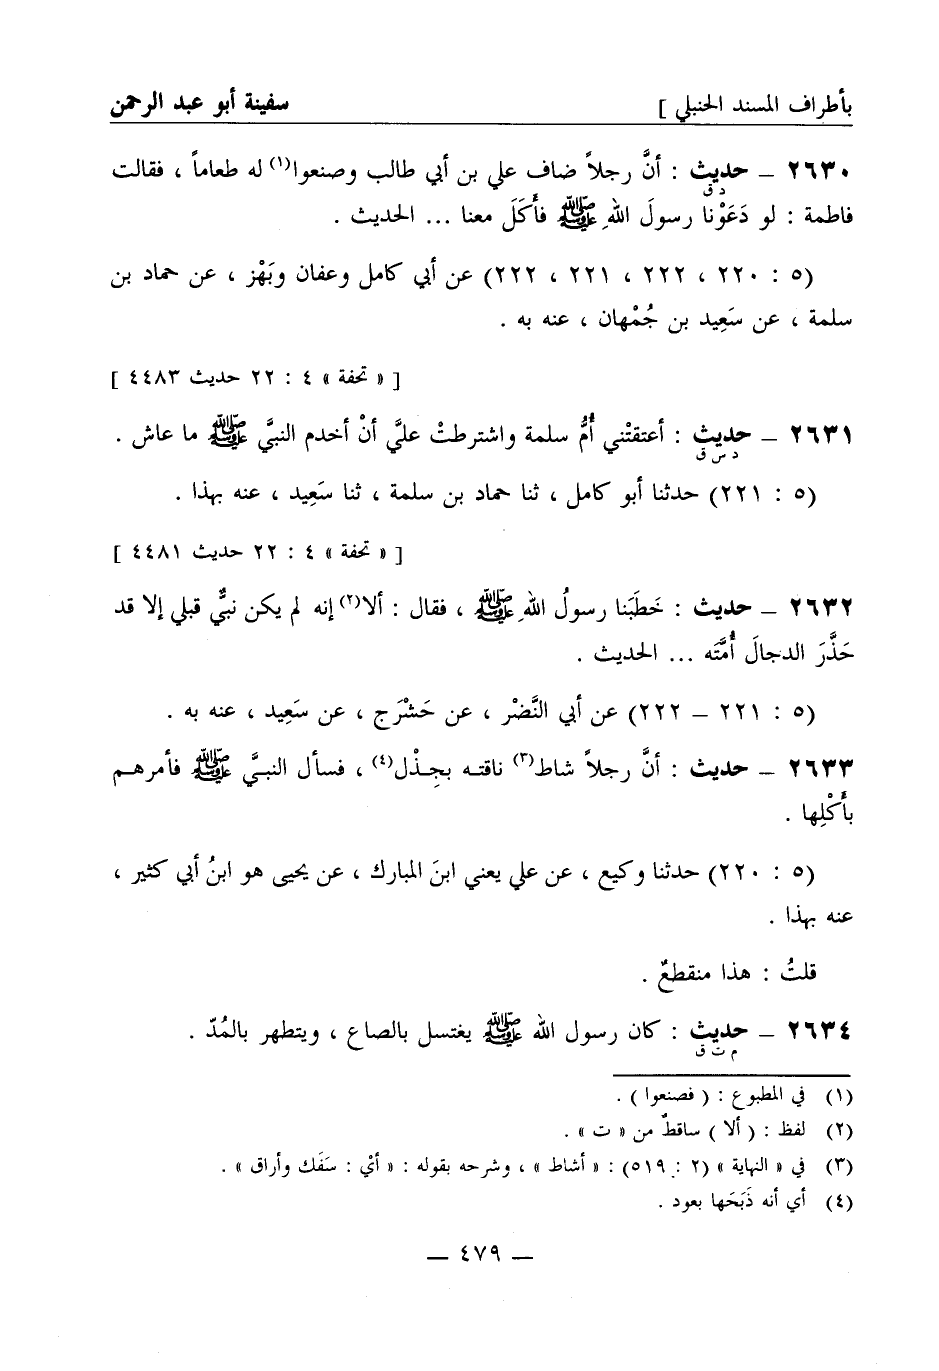 بأطراف المسند الحنبلي ] سفينة أبو عبد الرحمن
٢٦٣٠ ـ حديث : أنَّ رجلاً ضاف علي بن أبي طالب وصنعوا(١) له طعاماً ، فقالت
د ق
فاطمة : لو دَعَوْنا رسولَ اللهِ ﷺ فأَكَلَ معنا ... الحديث .
(٥ : ٢٢٠ ، ٢٢٢ ، ٢٢١ ، ٢٢٢) عن أبي كامل وعفان وبَهْز ، عن حماد بن
سلمة ، عن سَعِيد بن جُمْهان ، عنه به .
[ « تحفة » ٤ : ٢٢ حديث ٤٤٨٣ ]
٢٦٣١ ـ حديث : أعتقتْني أُمُّ سلمة واشترطتْ عليَّ أنْ أخدم النبيَّ ﷺ ما عاش .
د س ق
(٥ : ٢٢١) حدثنا أبو كامل ، ثنا حماد بن سلمة ، ثنا سَعِيد ، عنه بهذا .
[ « تحفة » ٤ : ٢٢ حديث ٤٤٨١ ]
٢٦٣٢ ـ حديث : خَطَبَنا رسولُ اللهِ ﷺ ، فقال : ألا(٢) إنه لم يكن نبيٌّ قبلي إلا قد
حَذَّرَ الدجالَ أُمَّتَه ... الحديث .
(٥ : ٢٢١ ـ ٢٢٢) عن أبي النَّضْر ، عن حَشْرَج ، عن سَعِيد ، عنه به .
٢٦٣٣ ـ حديث : أنَّ رجلاً شاط(٣) ناقته بجِذْل(٤) ، فسأل النبيَّ ﷺ فأمرهم
بأَكْلِها .
(٥ : ٢٢٠) حدثنا وكيع ، عن علي يعني ابنَ المبارك ، عن يحيى هو ابنُ أبي كثير ،
عنه بهذا .
قلتُ : هذا منقطعٌ .
٢٦٣٤ ـ حديث : كان رسول الله ﷺ يغتسل بالصاع ، ويتطهر بالمُدّ .
م ت ق
(١) في المطبوع : ( فصنعوا ) .
(٢) لفظ : ( ألا ) ساقطٌ من « ت » .
(٣) في « النهاية » (٢ : ٥١٩) : « أشاط » ، وشرحه بقوله : « أيْ : سَفَك وأراق » .
(٤) أي أنه ذَبَحَها بعود .
ـ ٤٧٩ ـ